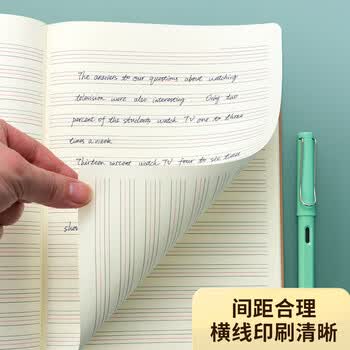 The answers to our questions about watching
television were also interesting. Only two
percent of the students watch TV one to three
times a week.
Thirteen percent watch TV four to six times
间距合理
横线印刷清晰